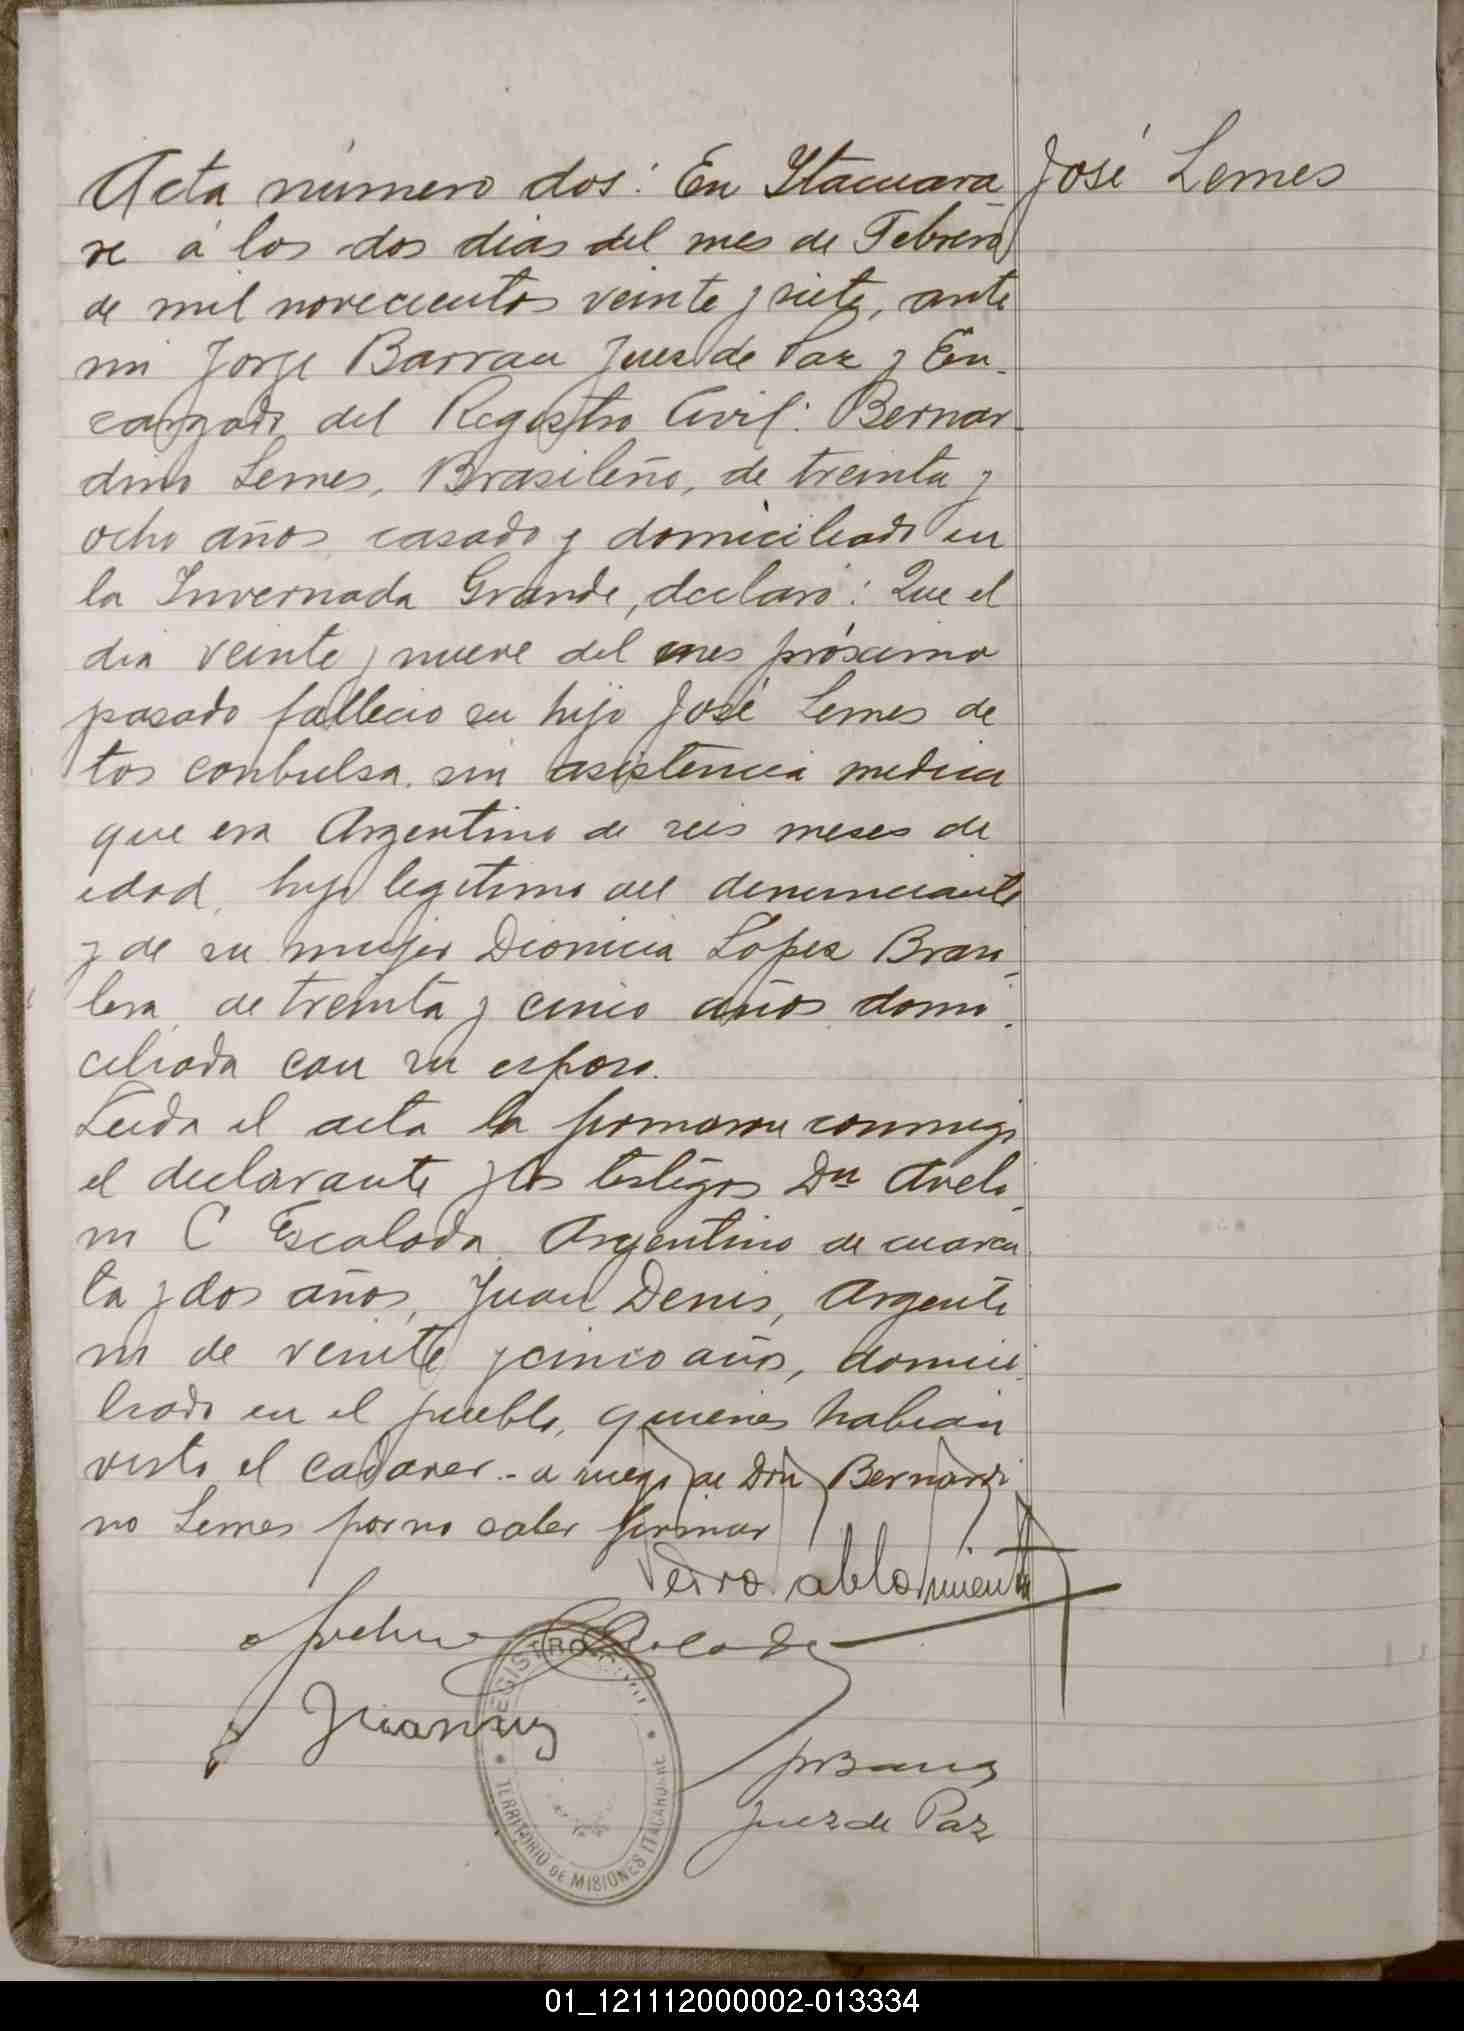 Acta número dos: En Ytacuara-
re á los dos dias del mes de Febrero
de mil novecientos veinte y siete, ante
mi Jorge Barrau Juez de Paz y En-
cargado del Registro Civil: Bernar-
dino Lemes, Brasileño, de treinta y
ocho años casado y domiciliado en
la Invernada Grande, declaró: Que el
dia veinte y nueve del mes próximo
pasado fallecio su hijo José Lemes de
tos conbulsa. sin asistencia medica
que era Argentino de seis meses de
edad, hijo legitimo del denunciante
y de su mujer Dionicia Lopez Brasi-
lera de treinta y cinco años domi-
ciliada con su esposo.
Leida el acta la firmaron conmigo
el declarante y los testigos Dn Aveli-
no C Escalada, Argentino de cuaren
ta y dos años, Juan Denis, Argenti
no de veinte y cinco años, domici-
liado en el pueblo, quienes habian
visto el cadaver.- a ruego de Don Bernardi
no Lemes por no saber firmar
José Lemes
Pedro
Escalada
Juan
Juez de Paz
REGISTRO CIVIL
TERRITORIO DE MISIONES ITACARUARE
01_121112000002-013334